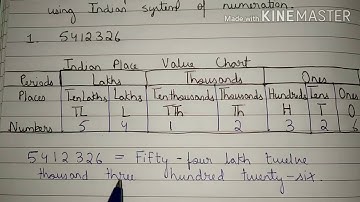 using Indian system of numeration.
Made with KINEMASTER
1. 5412326
Indian Place Value Chart
Periods Lakhs Thousands Ones
Places Ten Lakhs Lakhs Ten thousands Thousands Hundreds Tens Ones
TL L TTh Th H T O
Numbers 5 4 1 2 3 2 6
5412326 = Fifty-four lakh twelve
thousand three hundred twenty-six.